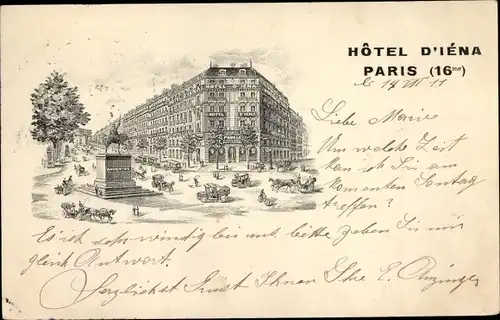 HÔTEL D'IÉNA
PARIS (16me)
le 14 VII 11
Liebe Marie
Um welche Zeit
kan ich Sie am
komenten Sontag
treffen?
Es ist sehr windig bei uns, bitte geben Sie mir
gleich Antwort.
Herzlichst Grüst Ihnen Ihre E.
HOTEL D'IENA